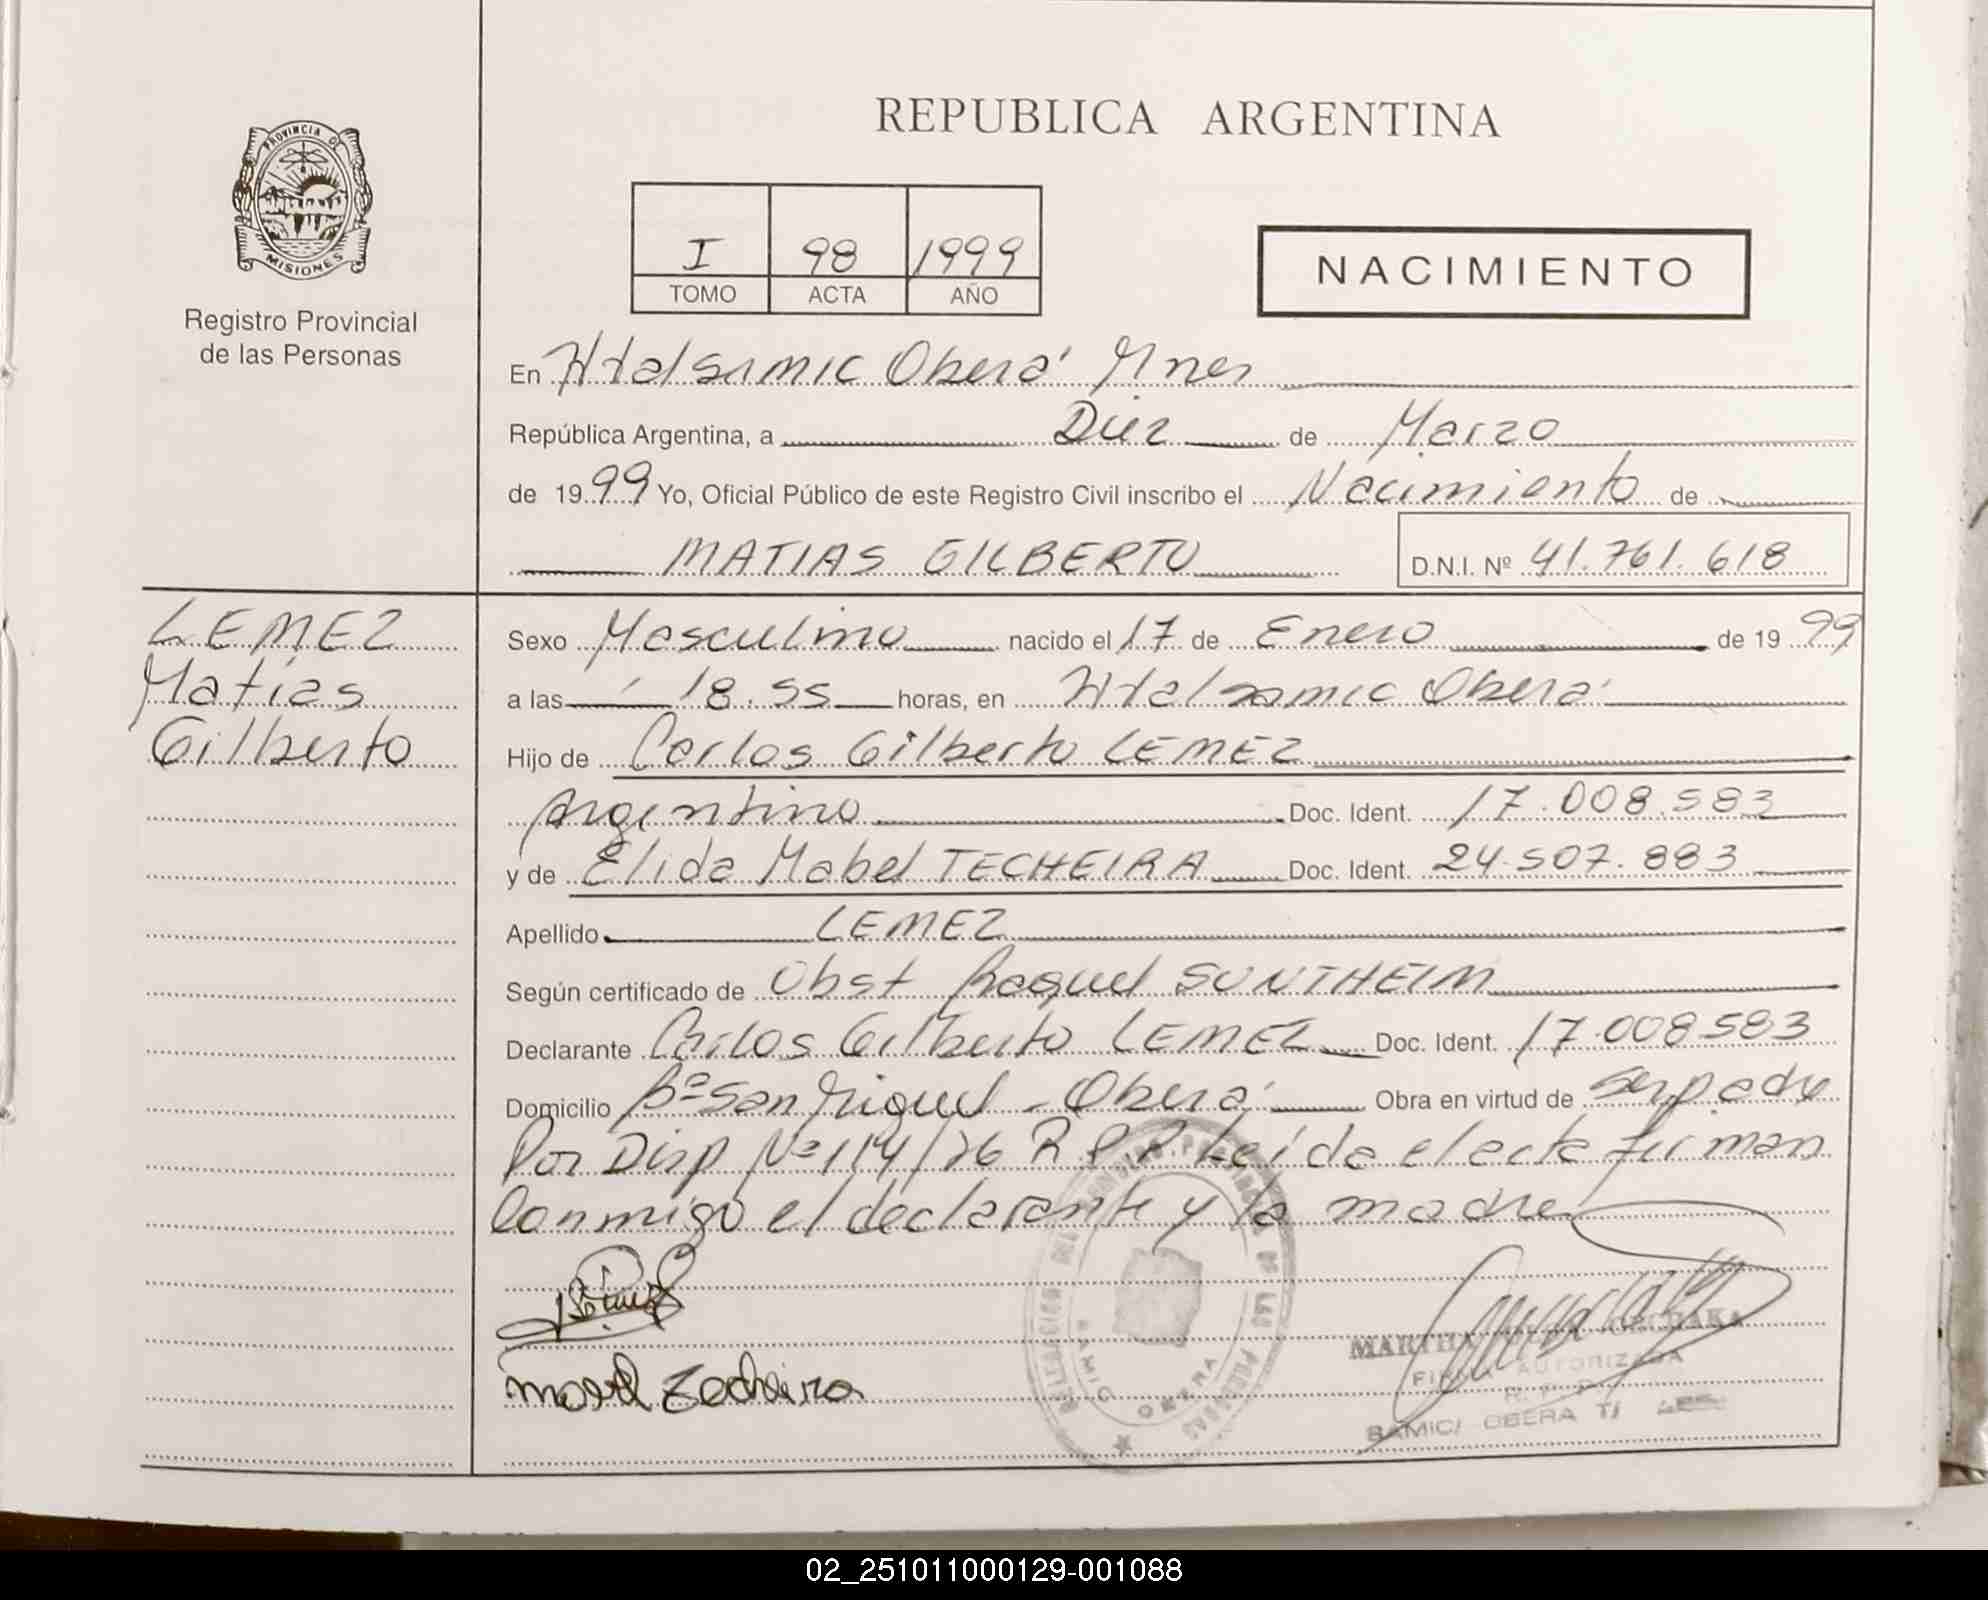 PROVINCIA D
MISIONES
Registro Provincial
de las Personas
REPUBLICA ARGENTINA
I 98 1999
TOMO ACTA AÑO
NACIMIENTO
En Htalsamic Oberá Mnes
República Argentina, a Diez de Marzo
de 1999 Yo, Oficial Público de este Registro Civil inscribo el Nacimiento de
MATIAS GILBERTO D.N.I. Nº 41.761.618
LEMEZ
Matías
Gilberto
Sexo Masculino nacido el 17 de Enero de 1999
a las 18.55 horas, en Htalsamic Oberá
Hijo de Carlos Gilberto LEMEZ
Argentino Doc. Ident. 17.008.583
y de Elida Mabel TECHEIRA Doc. Ident. 24.507.883
Apellido LEMEZ
Según certificado de Obst Raquel SUNTHEIM
Declarante Carlos Gilberto LEMEZ Doc. Ident. 17.008583
Domicilio Bº San Miguel - Oberá Obra en virtud de ser padre
Por Disp Nº 114/76 R P P Leída el acta firman
Conmigo el declarante y la madre
Mabel Techeira
MARTHA
FIRMA AUTORIZADA
R. P. P.
SAMIC/ OBERA
DELEGACION DE LAS PERSONAS
SAMIC OBERA
02_251011000129-001088